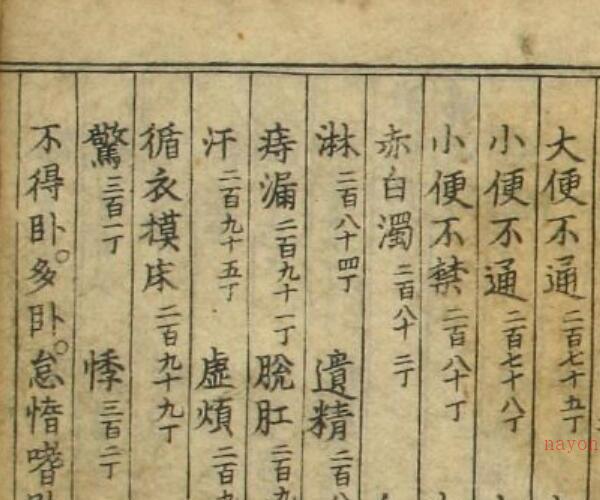 大便不通 二百七十五丁
小便不通 二百七十八丁
小便不禁 二百八十丁
赤白濁 二百八十二丁
淋 二百八十四丁 遺精 二百八
痔漏 二百九十一丁 脫肛 二百九
汗 二百九十五丁 虛煩 二百九
循衣摸床 二百九十九丁
驚 三百一丁 悸 三百二丁
不得臥。多臥。怠惰嗜臥
nayon